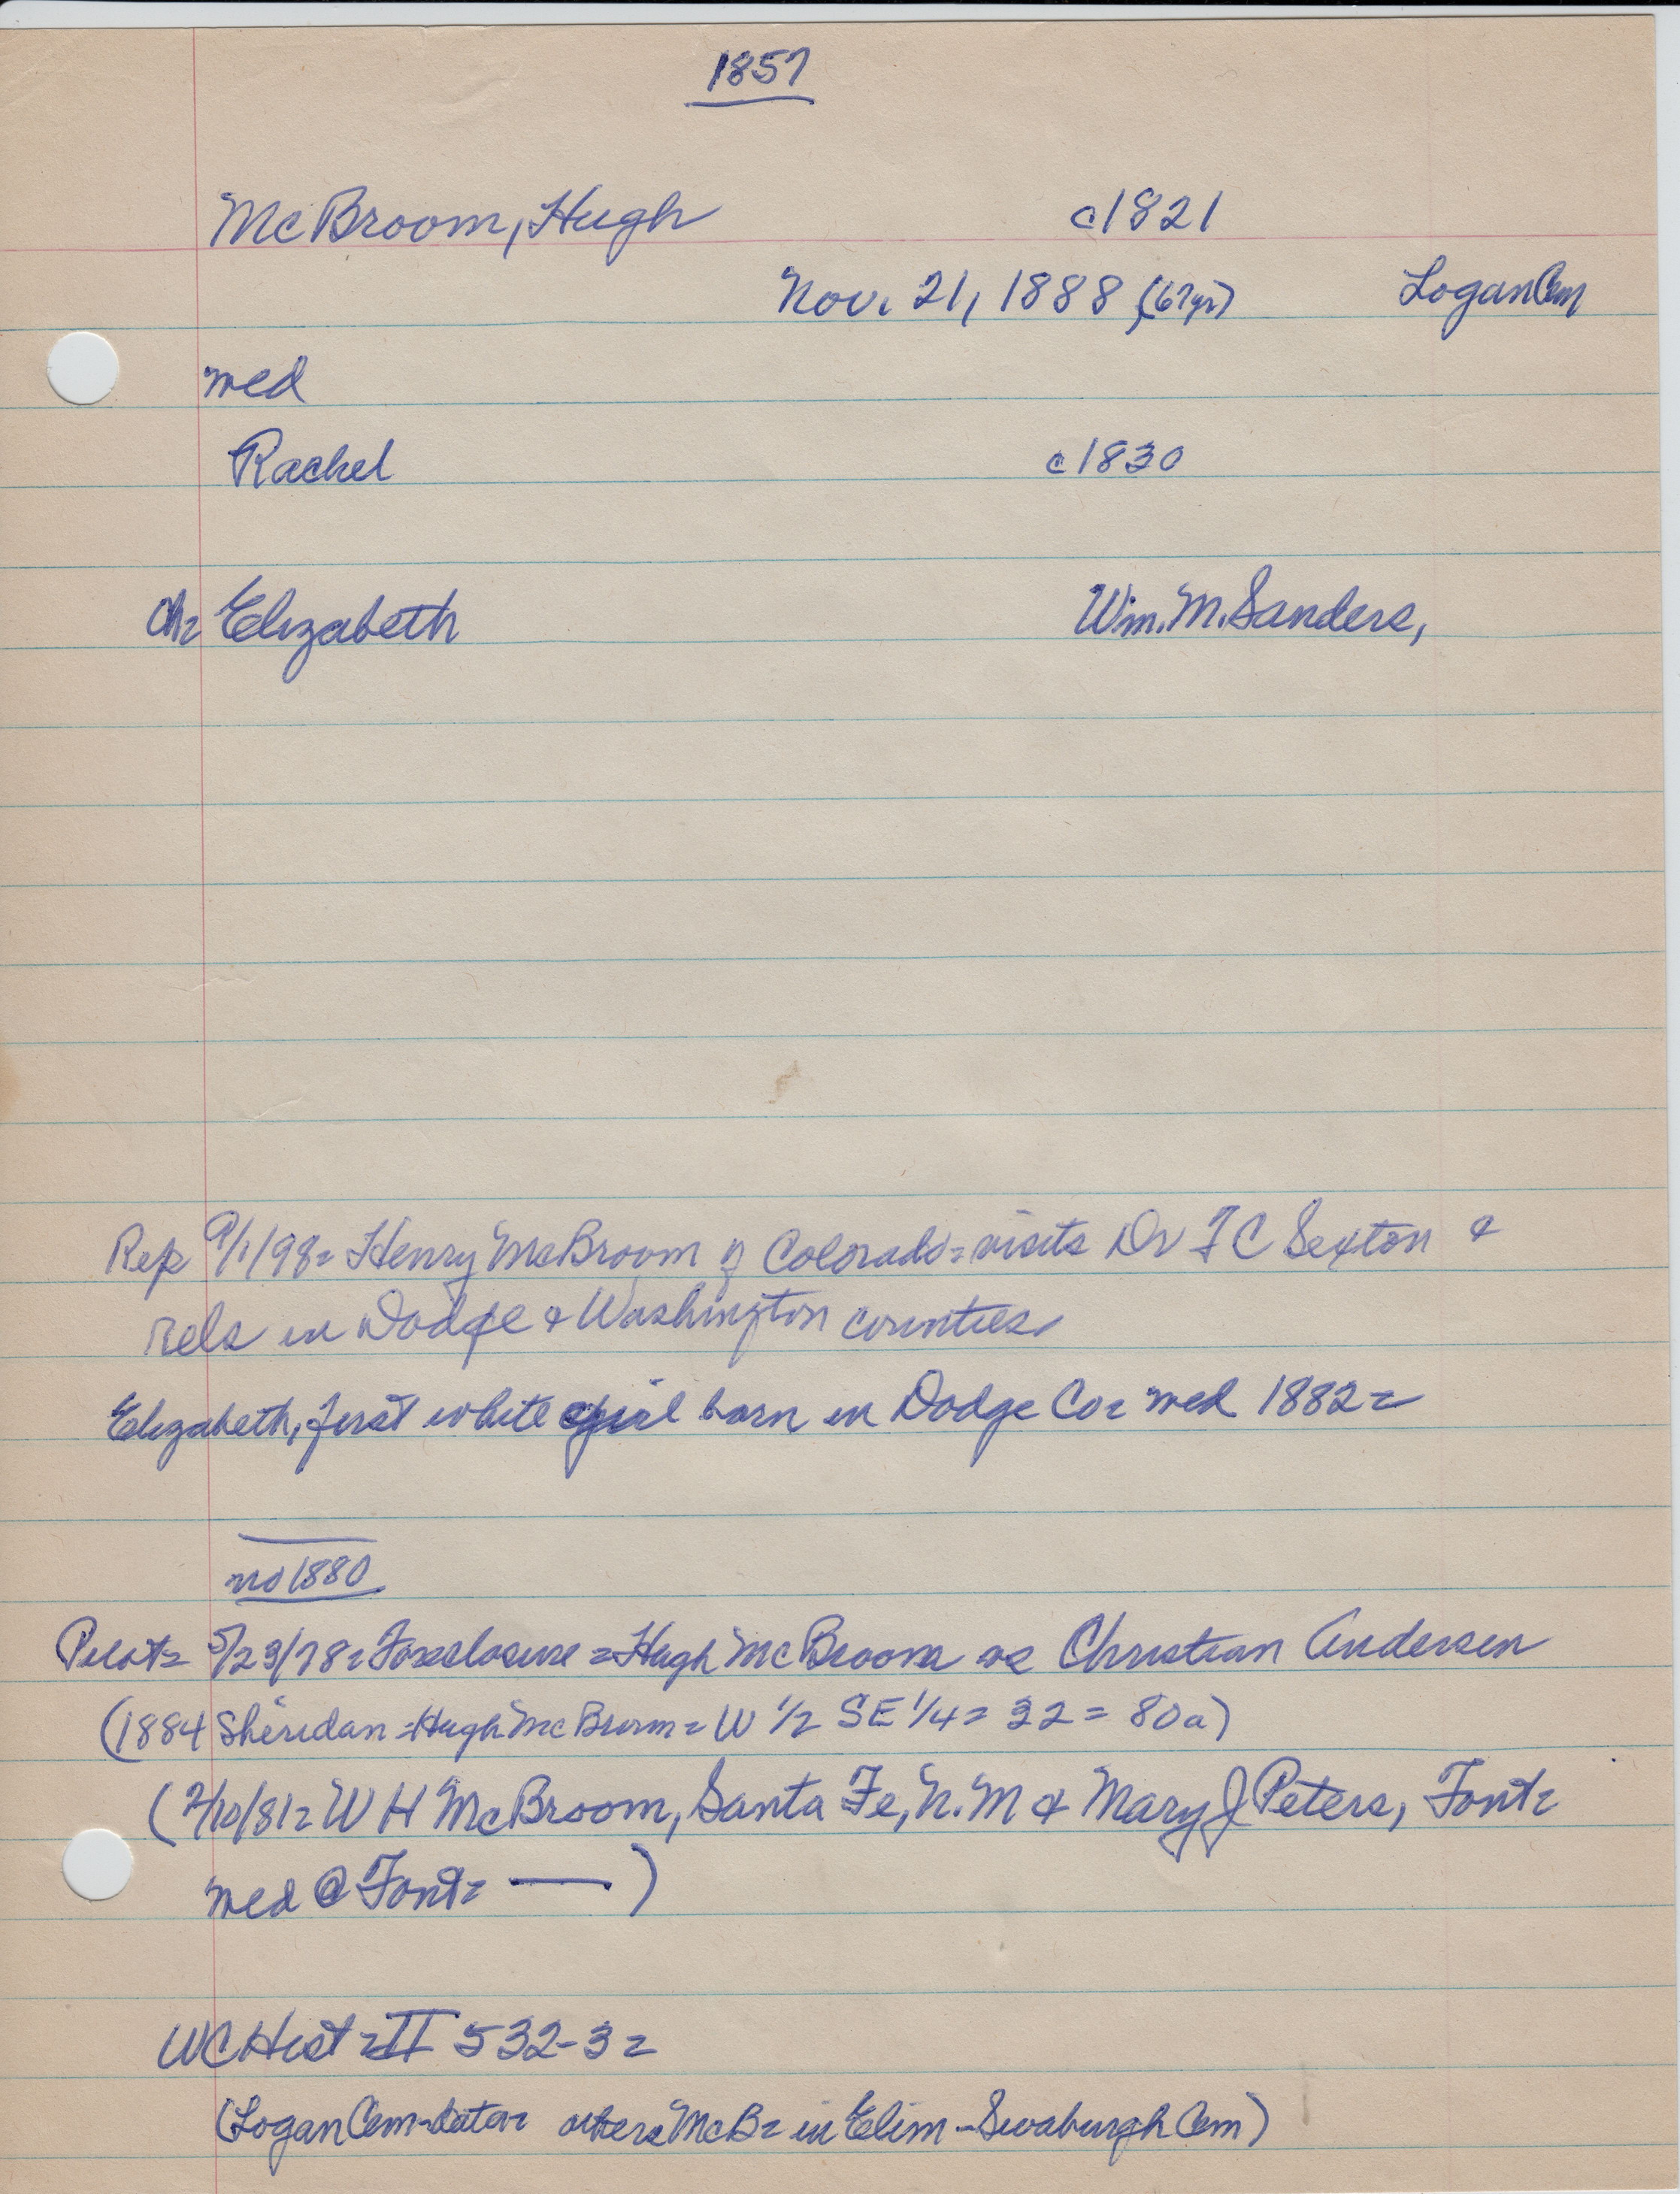 1857
McBroom, Hugh c1821
Nov. 21, 1888 (67yrs) Logan Cem
med
Rachel c1830
ch= Elizabeth Wm. M. Sanders,
Rep 9/1/98= Henry McBroom of Colorado= visits Dr F C Sexton &
rels in Dodge & Washington counties
Elizabeth, first white girl born in Dodge Co= med 1882=
no 1880
Pilot= 5/23/78= Foreclosure = Hugh McBroom vs Christian Andersen
(1884 Sheridan = Hugh McBroom = W 1/2 SE 1/4 = 32 = 80a)
(2/10/81= W H McBroom, Santa Fe, N.M & Mary J Peters, Font=
med @ Font= — )
WCHist = II 532-3=
(Logan Cem= data= others McB= in Elim - Swaburgh Cem)